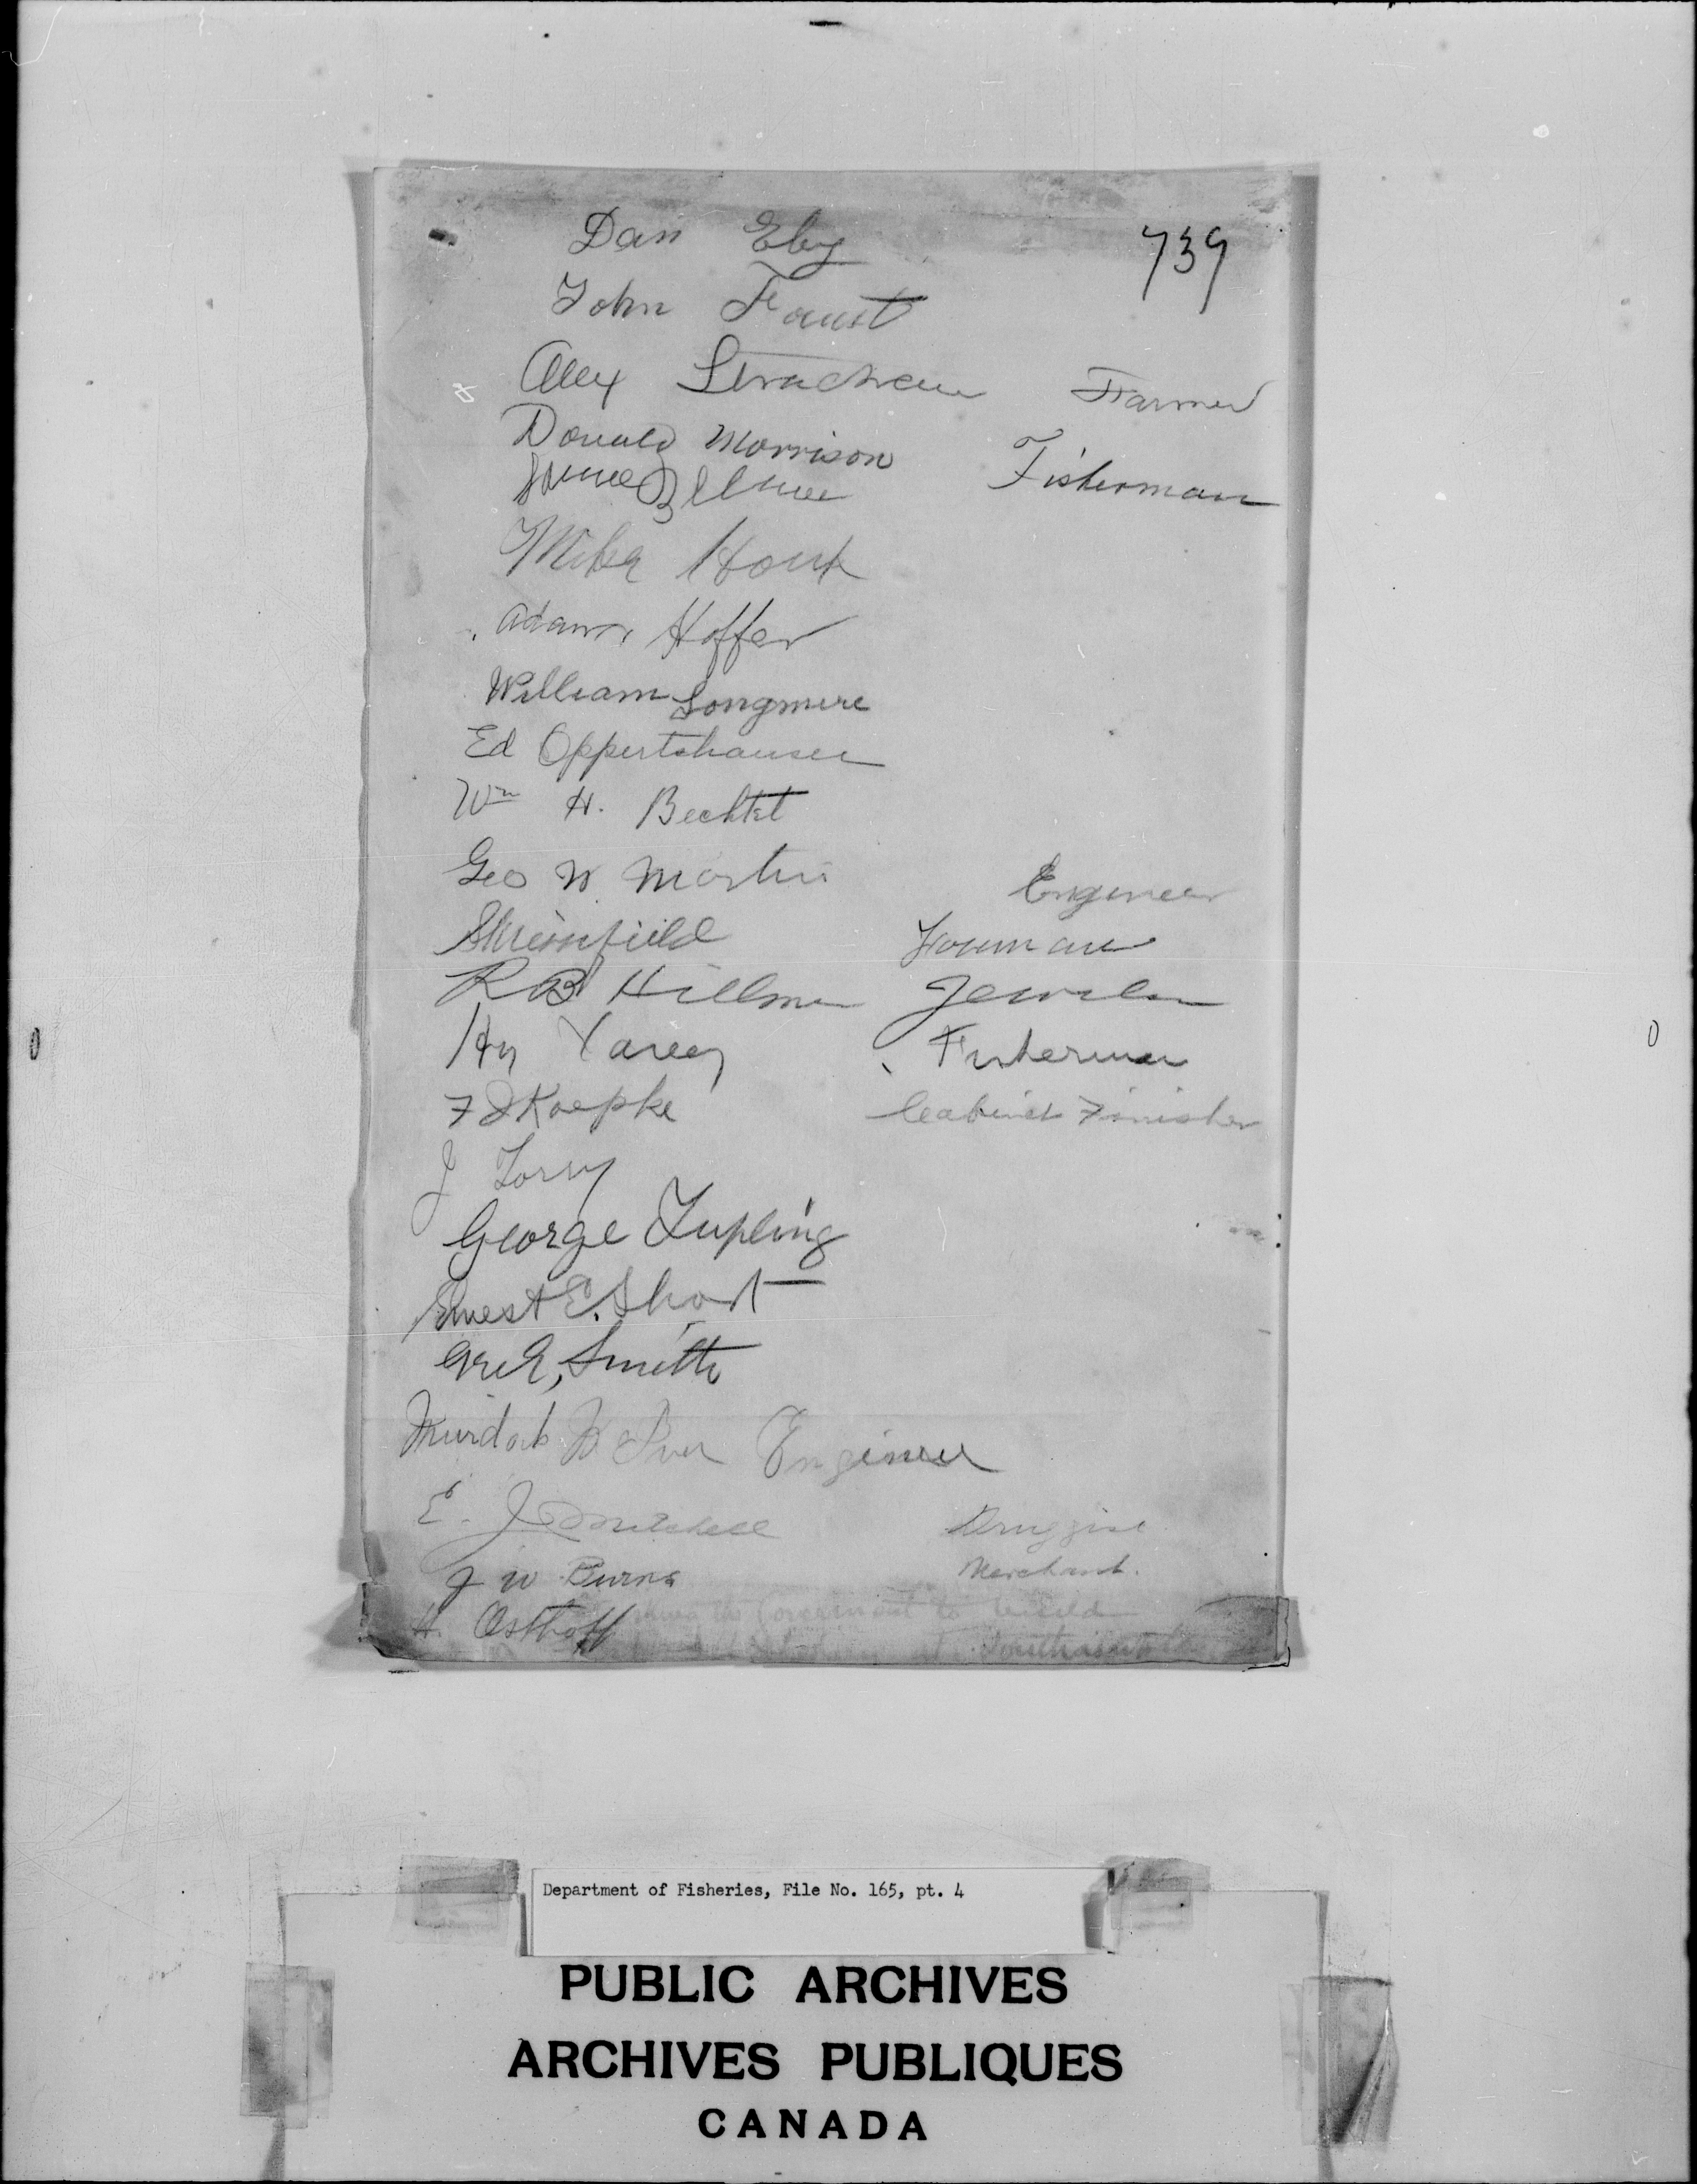 739
Dan Eby
John Faust
Alex Strachan Farmer
Donald Morrison Fisherman
Mike Houk
Adam Hoffer
William Longmire
Ed Oppertshauser
Wm H. Bechtel
Geo W Martin Engineer
Foreman
R B Hillmer Jeweler
Hy Yarey Fisherman
F J Koepke Cabinet Finisher
J Torry
George Tupling
Ernest E. Short
Smith
Murdock Engineer
E. J Mitchell Druggist
J W Burns Merchant.
H. Osthoff
the Government to build
Southampton
Department of Fisheries, File No. 165, pt. 4
PUBLIC ARCHIVES
ARCHIVES PUBLIQUES
CANADA